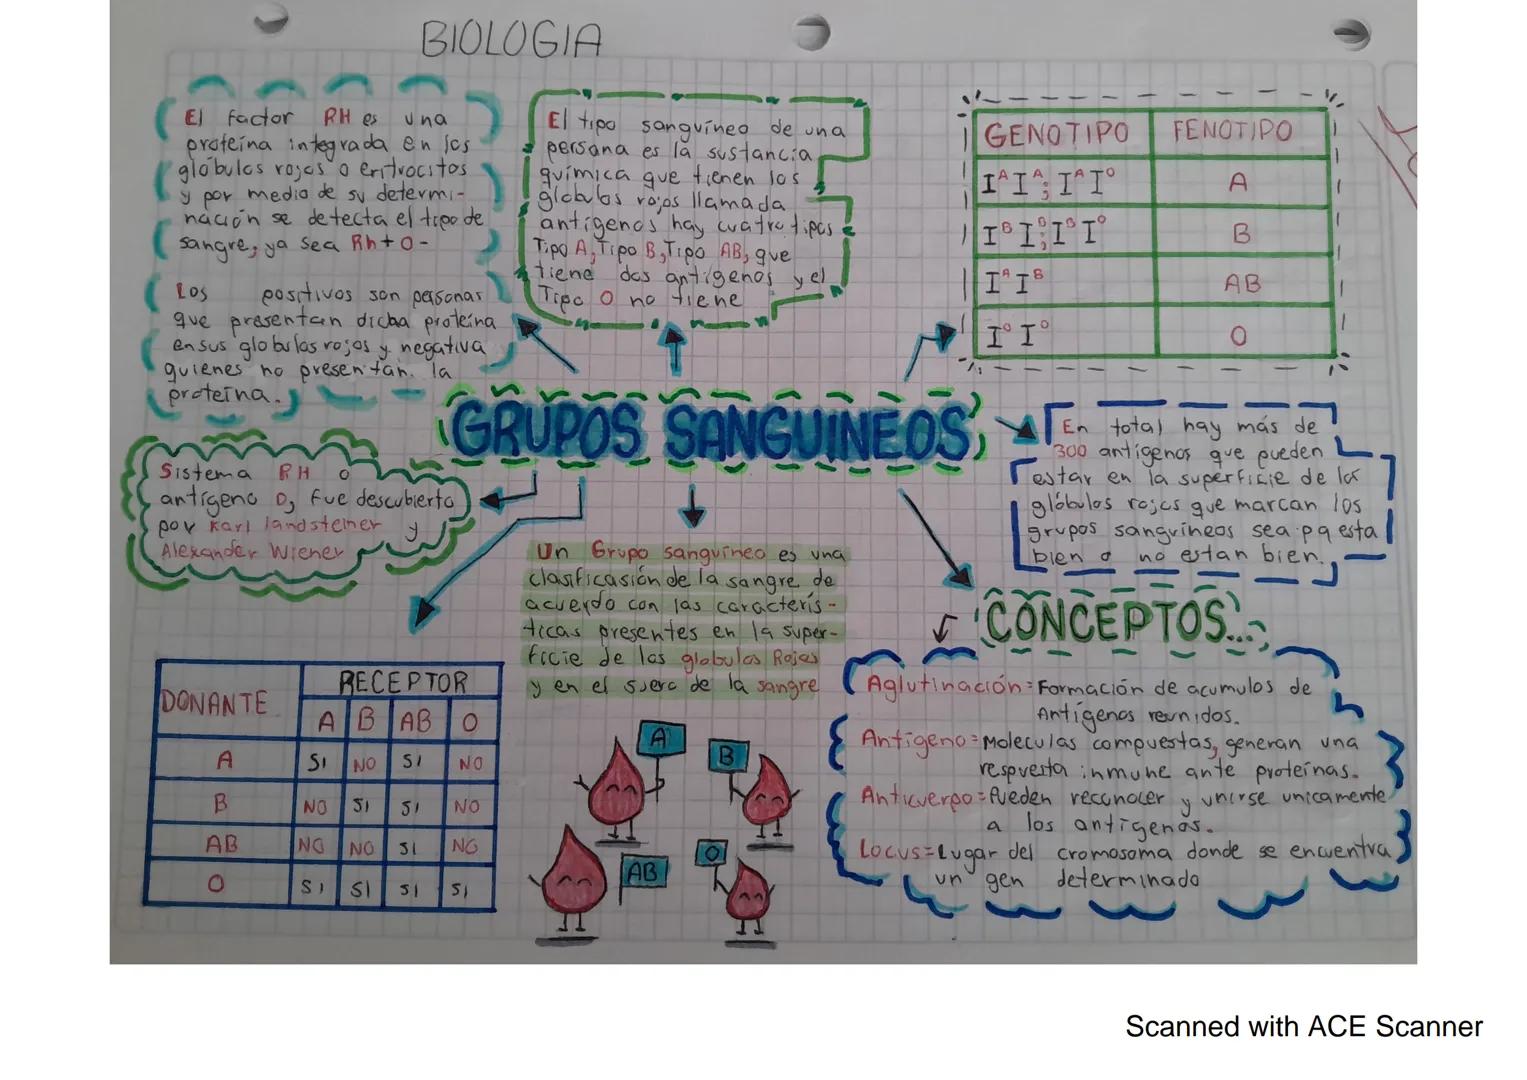 BIOLOGIA
El factor RH es una
proteína integrada en los
glóbulos rojos o eritrocitos
y por medio de su determi-
nación se detecta el tipo de
sangre, ya sea Rh + O -
Los positivos son personas
que presentan dicha proteína
en sus globulos rojos y negativa
quienes no presentan. la
proteína.
El tipo sanguíneo de una
persona es la sustancia
química que tienen los
globulos rojos llamada
antígenos hay cuatro tipos
Tipo A, Tipo B, Tipo AB, que
tiene dos antígenos y el
Tipo O no tiene
GENOTIPO FENOTIPO
IᴬIᴬ; IᴬI° A
IᴮIᴮ; IᴮI° B
IᴬIᴮ AB
I°I° O
GRUPOS SANGUINEOS
En total hay más de
300 antígenos que pueden
estar en la superficie de los
glóbulos rojos que marcan los
grupos sanguíneos sea pq esta
bien o no estan bien.
Sistema RH o
antígeno D, fue descubierto
por Karl landsteiner y
Alexander Wiener
Un Grupo sanguíneo es una
clasificasión de la sangre de
acuerdo con las caracterís-
ticas presentes en la super-
ficie de los globulos Rojos
y en el suero de la sangre
CONCEPTOS...
Aglutinación = Formación de acumulos de
Antígenos reunidos.
Antígeno = Moleculas compuestas, generan una
respuesta inmune ante proteínas.
Anticuerpo = Pueden reconocer y unirse unicamente
a los antígenos.
Locus = Lugar del cromosoma donde se encuentra
un gen determinado
DONANTE RECEPTOR
A B AB O
A SI NO SI NO
B NO SI SI NO
AB NO NO SI NO
O SI SI SI SI
A
B
AB
O
Scanned with ACE Scanner